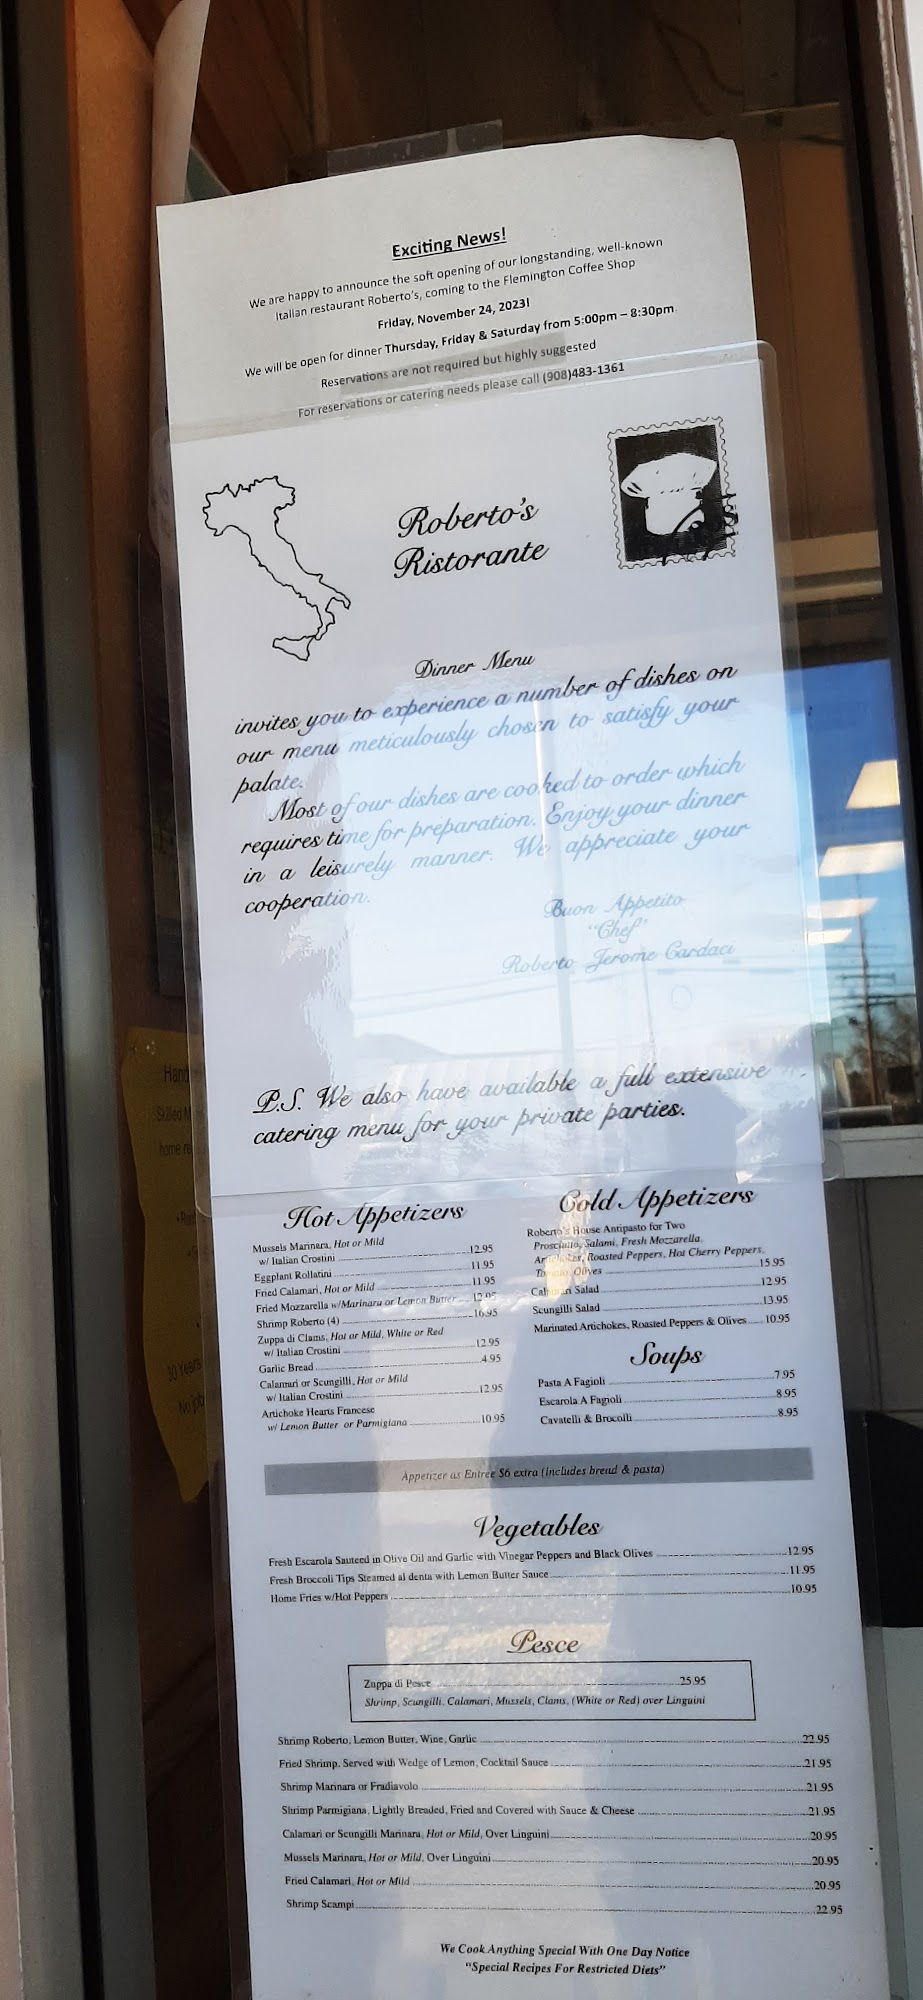 Exciting News!
We are happy to announce the soft opening of our longstanding, well-known
Italian restaurant Roberto's, coming to the Flemington Coffee Shop
Friday, November 24, 2023!
We will be open for dinner Thursday, Friday & Saturday from 5:00pm – 8:30pm
Reservations are not required but highly suggested
For reservations or catering needs please call (908)483-1361
Roberto's
Ristorante
Dinner Menu
invites you to experience a number of dishes on
our menu meticulously chosen to satisfy your
palate.
Most of our dishes are cooked to order which
requires time for preparation. Enjoy your dinner
in a leisurely manner. We appreciate your
cooperation.
Buon Appetito
"Chef"
Roberto Jerome Cardaci
P.S. We also have available a full extensive
catering menu for your private parties.
Hot Appetizers
Mussels Marinara, Hot or Mild
w/ Italian Crostini 12.95
Eggplant Rollatini 11.95
Fried Calamari, Hot or Mild 11.95
Fried Mozzarella w/Marinara or Lemon Butter 12.95
Shrimp Roberto (4) 16.95
Zuppa di Clams, Hot or Mild, White or Red
w/ Italian Crostini 12.95
Garlic Bread 4.95
Calamari or Scungilli, Hot or Mild
w/ Italian Crostini 12.95
Artichoke Hearts Francese
w/ Lemon Butter or Parmigiana 10.95
Cold Appetizers
Roberto's House Antipasto for Two
Prosciutto, Salami, Fresh Mozzarella,
Artichokes, Roasted Peppers, Hot Cherry Peppers,
Tomato, Olives 15.95
Calamari Salad 12.95
Scungilli Salad 13.95
Marinated Artichokes, Roasted Peppers & Olives 10.95
Soups
Pasta A Fagioli 7.95
Escarola A Fagioli 8.95
Cavatelli & Brocolli 8.95
Appetizer as Entree $6 extra (includes bread & pasta)
Vegetables
Fresh Escarola Sauteed in Olive Oil and Garlic with Vinegar Peppers and Black Olives 12.95
Fresh Broccoli Tips Steamed al denta with Lemon Butter Sauce 11.95
Home Fries w/Hot Peppers 10.95
Pesce
Zuppa di Pesce 25.95
Shrimp, Scungilli, Calamari, Mussels, Clams, (White or Red) over Linguini
Shrimp Roberto, Lemon Butter, Wine, Garlic 22.95
Fried Shrimp, Served with Wedge of Lemon, Cocktail Sauce 21.95
Shrimp Marinara or Fradiavolo 21.95
Shrimp Parmigiana, Lightly Breaded, Fried and Covered with Sauce & Cheese 21.95
Calamari or Scungilli Marinara, Hot or Mild, Over Linguini 20.95
Mussels Marinara, Hot or Mild, Over Linguini 20.95
Fried Calamari, Hot or Mild 20.95
Shrimp Scampi 22.95
We Cook Anything Special With One Day Notice
"Special Recipes For Restricted Diets"
Hand
Skilled
home
30 Years
No job